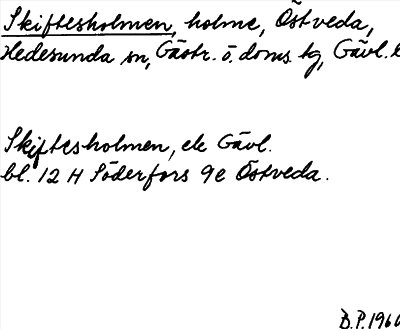 Skiftesholmen, holme, Östveda,
Hedesunda sn, Gästr. ö. doms. tg, Gävl. l
Skiftesholmen, ek Gävl.
bl. 12 H Söderfors 9e Östveda.
B.P. 1960